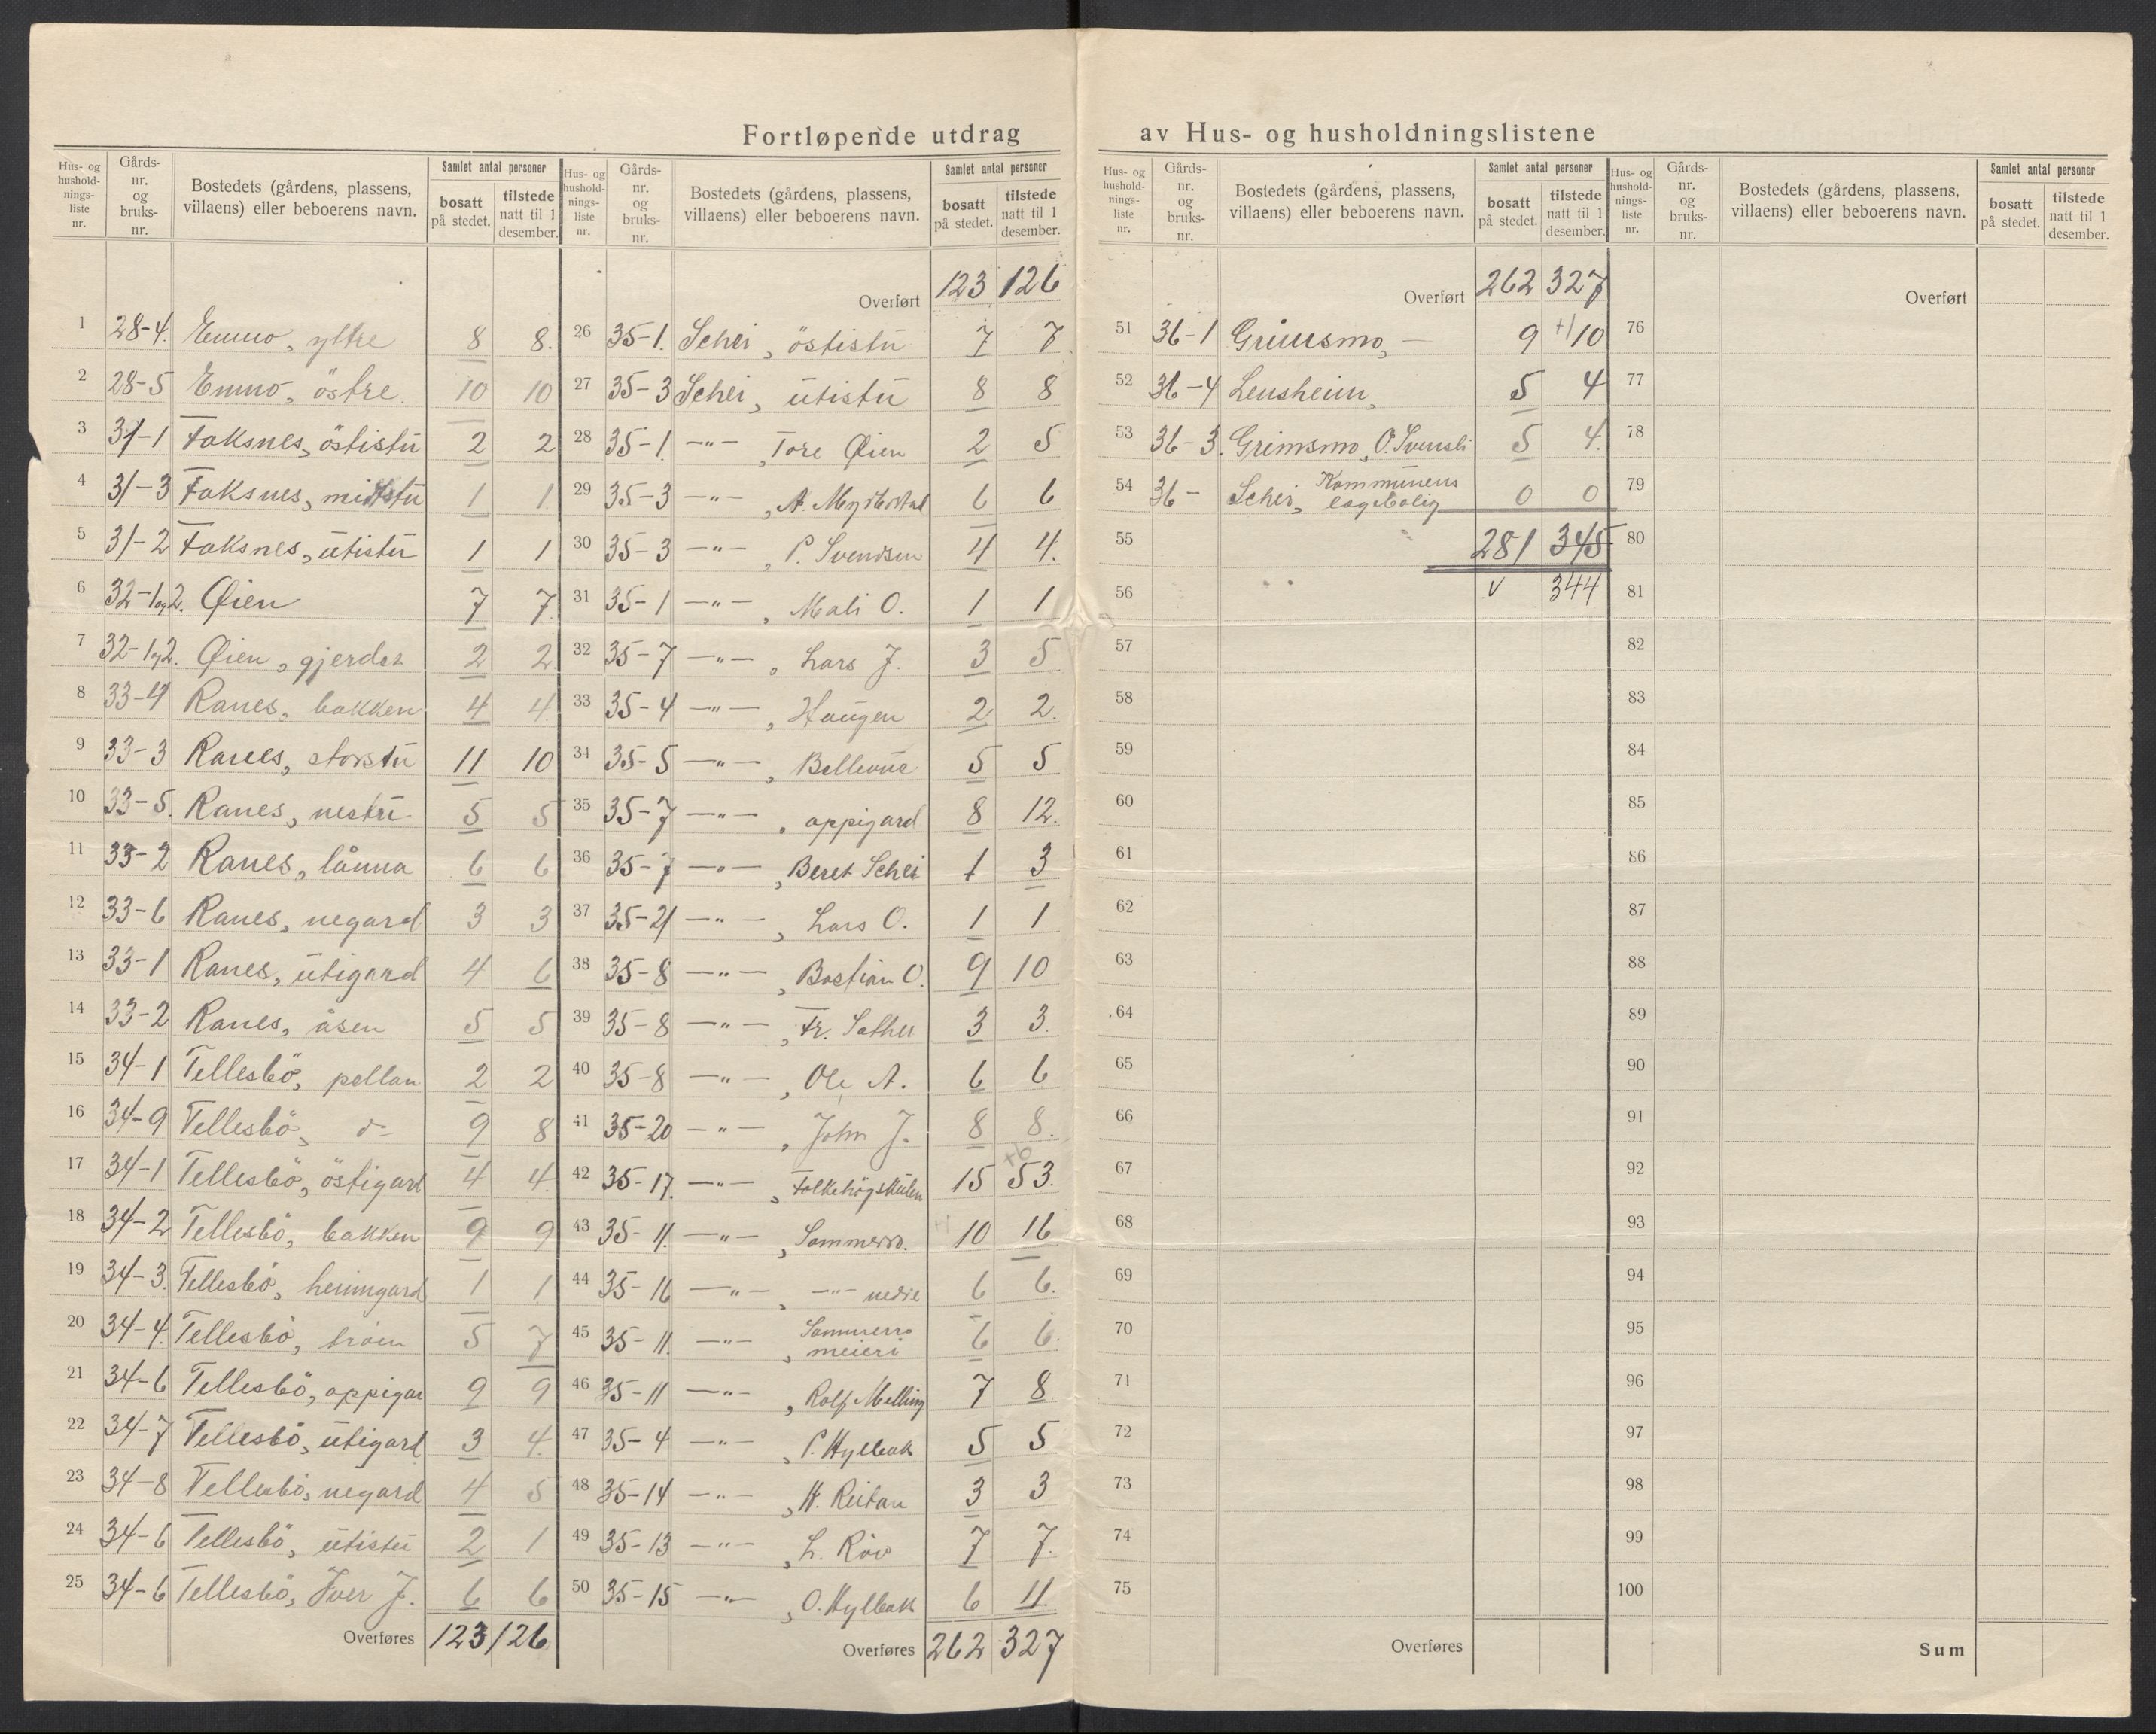 Fortløpende utdrag av Hus- og husholdningslistene
Hus- og husholdnings-liste nr. Gårds-nr. og bruks-nr. Bostedets (gårdens, plassens, villaens) eller beboerens navn. Samlet antal personer bosatt på stedet. tilstede natt til 1 desember.
1 28-4. Emmo, yttre 8 8.
2 28-5 Emmo, östre. 10 10
3 31-1 Foksnes, östistu 2 2
4 31-3 Foksnes, midtstu 1 1
5 31-2 Foksnes, utistu 1 1
6 32-1og2. Øien 7 7.
7 32-1og2. Øien, gjerdet 2 2
8 33-4 Ranes, bakken 4 4
9 33-3 Ranes, storstu 11 10
10 33-5. Ranes, nestu 5 5
11 33-2 Ranes, lånna 6 6
12 33-6 Ranes, negard 3 3
13 33-1 Ranes, utigard 4 6
14 33-2 Ranes, åsen 5 5
15 34-1 Tellesbö, pellan 2 2
16 34-9 Tellesbö, d- 9 8
17 34-1 Tellesbö, östigard 4 4
18 34-2 Tellesbö, bakken 9 9
19 34-3. Tellesbö, heimgard 1 1
20 34-4. Tellesbö, 5 7
21 34-6 Tellesbö, oppigar 9 9
22 34-7 Tellesbö, utigard 3 4.
23 34-8 Tellesbö, negard 4 5
24 34-6 Tellesbö, utistu 2 1
25 34-6 Tellesbö, Iver J. 6 6
Overføres 123 126
Hus- og husholdnings-liste nr. Gårds-nr. og bruks-nr. Bostedets (gårdens, plassens, villaens) eller beboerens navn. Samlet antal personer bosatt på stedet. tilstede natt til 1 desember.
Overført 123 126
26 35-1. Schei, östistu 7 7.
27 35-3 Schei, utistu 8 8
28 35-1. -"- , Tore Øien 2 5
29 35-3 -"- , A. Myrbostad 6 6
30 35-3 -"- , P. Svendsen 4 4.
31 35-1 -"- , Mali O. 1 1
32 35-7 -"- , Lars J. 3 5
33 35-4 -"- , Haugen 2 2.
34 35-5 -"- , Bellevue 5 5
35 35-7 -"- , oppigard 8 12.
36 35-7 -"- , Beret Schei 1 3
37 35-21 -"- , Lars O. 1 1
38 35-8 -"- , Bastian O. 9 10
39 35-8 -"- , Fr. Sæther 3 3.
40 35-8 -"- , Ole A. 6 6
41 35-20 -"- , John J. 8 8.
42 35-17. -"- , Folkehögskulen 15 +6 53.
43 35-11. -"- , Sommerro. +1 10 16
44 35-16 -"- , -"- nedre 6 6.
45 35-11. -"- , Sommerro meieri 6 6.
46 35-11 -"- , Rolf Melling 7 8
47 35-4 -"- , P. Hylbak 5 5
48 35-14 -"- , H. Reitan 3 3
49 35-13 -"- , L. Röv 7 7.
50 35-15 -"- , O. Hylbak 6 11.
Overføres 262 327
Hus- og husholdnings-liste nr. Gårds-nr. og bruks-nr. Bostedets (gårdens, plassens, villaens) eller beboerens navn. Samlet antal personer bosatt på stedet. tilstede natt til 1 desember.
Overført 262 327
51 36-1 Grimsmo, - 9 +1 10
52 36-4 Lensheim, 5 4
53 36-3. Grimsmo, O. Svensli 5 4.
54 36- Schei, Kommunens 0 0
55 281 345
56 v 344
57
58
59
60
61
62
63
64
65
66
67
68
69
70
71
72
73
74
75
Overføres
Hus- og husholdnings-liste nr. Gårds-nr. og bruks-nr. Bostedets (gårdens, plassens, villaens) eller beboerens navn. Samlet antal personer bosatt på stedet. tilstede natt til 1 desember.
Overført
76
77
78
79
80
81
82
83
84
85
86
87
88
89
90
91
92
93
94
95
96
97
98
99
100
Sum